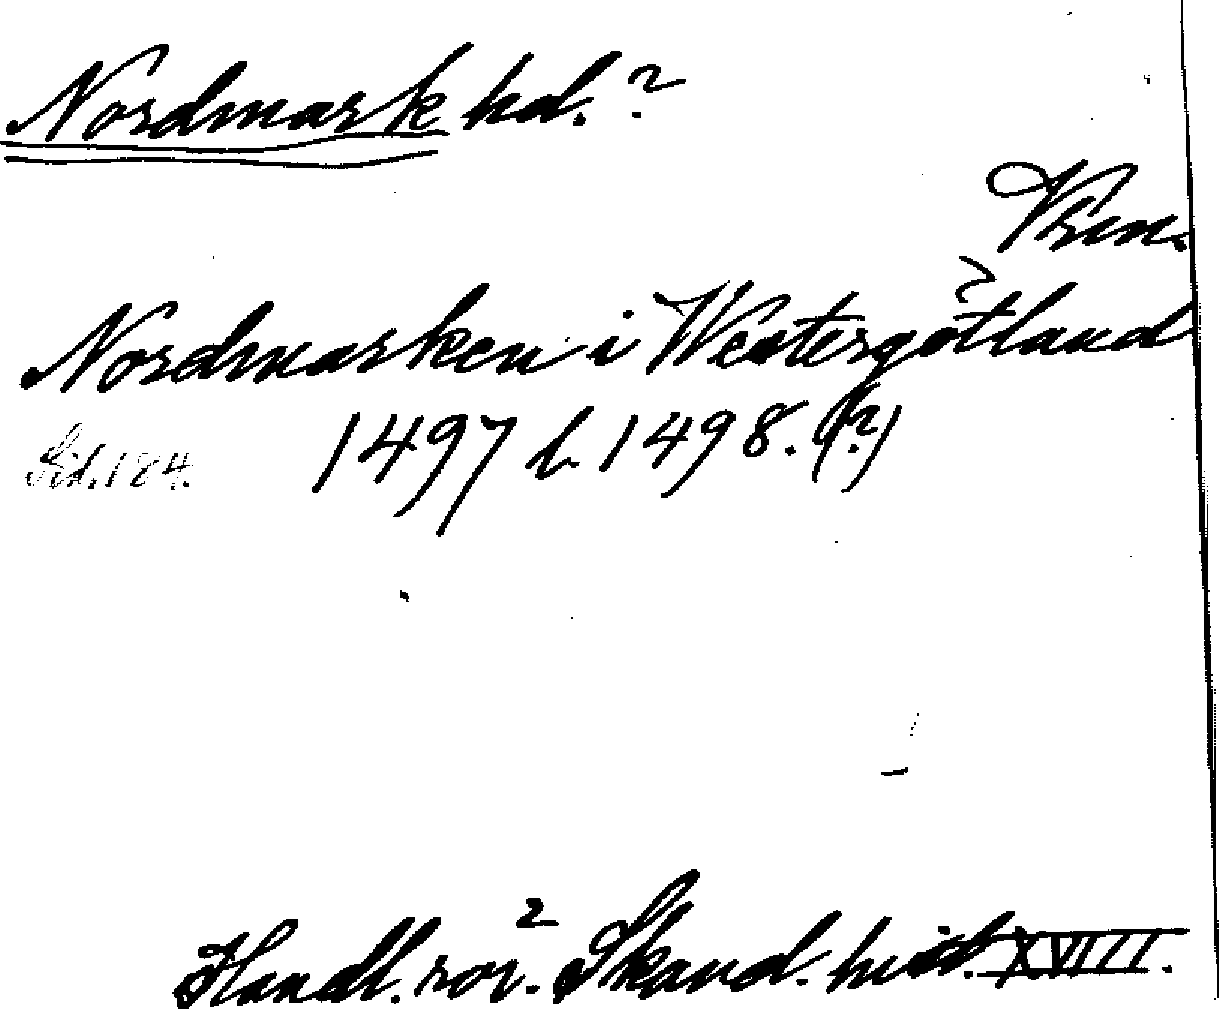 Nordmark hd.?
Vrm.
Nordmarken i Westergötland
Sid. 184. 1497 l. 1498. (?)
Handl. rör. Skand. hist. XVIII.